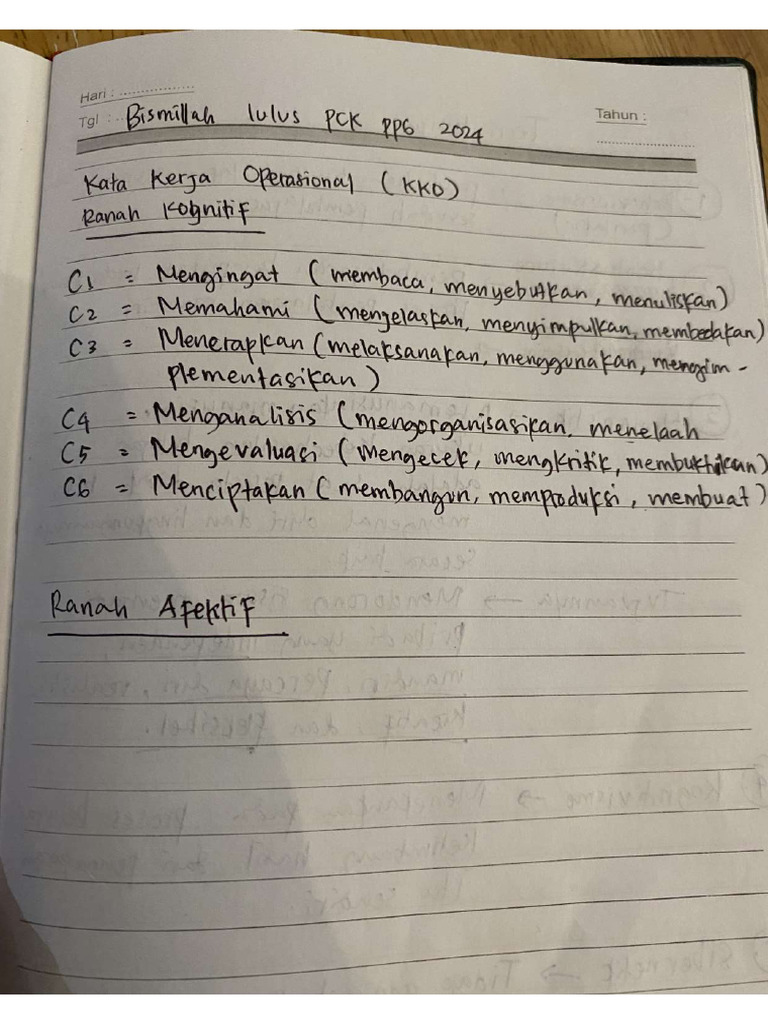 Hari : ....................
Tgl : .. Bismillah lulus PCK PPG 2024
Tahun :
Kata Kerja Operasional (KKO)
Ranah Kognitif
C1 = Mengingat (membaca, menyebutkan, menuliskan)
C2 = Memahami (menjelaskan, menyimpulkan, membedakan)
C3 = Menerapkan (melaksanakan, menggunakan, mengim-
plementasikan)
C4 = Menganalisis (mengorganisasikan, menelaah
C5 = Mengevaluasi (mengecek, mengkritik, membuktikan)
C6 = Menciptakan (membangun, memproduksi, membuat)
Ranah Afektif